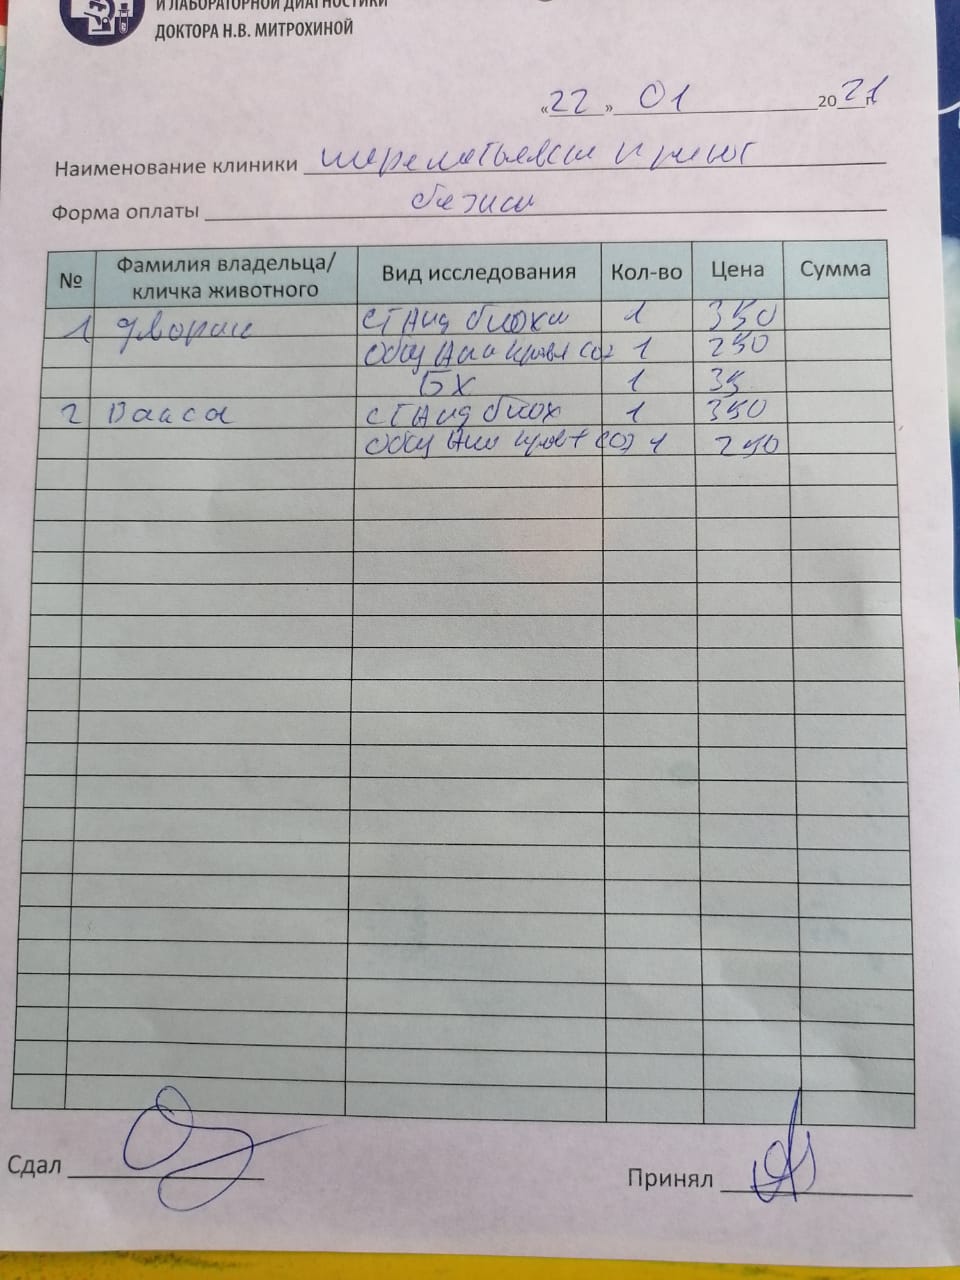 И ЛАБОРАТОРНОЙ ДИАГНОСТИКИ
ДОКТОРА Н.В. МИТРОХИНОЙ
«22» 01 2021 г.
Наименование клиники
Форма оплаты безнал
№ Фамилия владельца/ кличка животного Вид исследования Кол-во Цена Сумма
1 станд биохи 1 350
общ Ана крови соэ 1 250
БХ 1 35
2 станд биох 1 350
общ Ана кров + соэ 1 250
Сдал
Принял